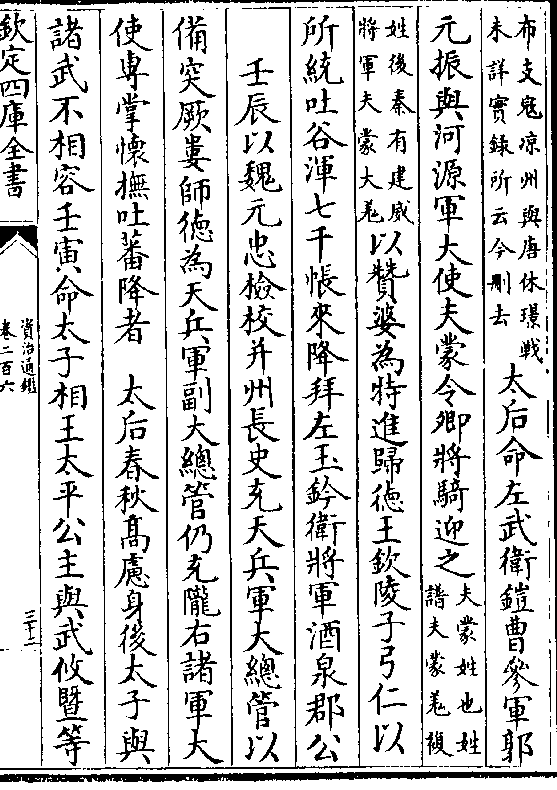 布支寇凉州與唐休璟戰
未詳實錄所云今刪去
太后命左武衛鎧曹參軍郭
元振與河源軍大使夫蒙令卿將騎迎之
夫蒙姓也姓
譜夫蒙羌複
姓後秦有建威
將軍夫蒙大羌
以贊婆為特進歸徳王欽陵子弓仁以
所統吐谷渾七千帳來降拜左玉鈐衛將軍酒泉郡公
壬辰以魏元忠檢校并州長史充天兵軍大總管以
備突厥婁師徳為天兵軍副大總管仍充隴右諸軍大
使専掌懷撫吐蕃降者 太后春秋髙慮身後太子與
諸武不相容壬寅命太子相王太平公主與武攸暨等
欽定四庫全書
資治通鑑
卷二百六
三十二